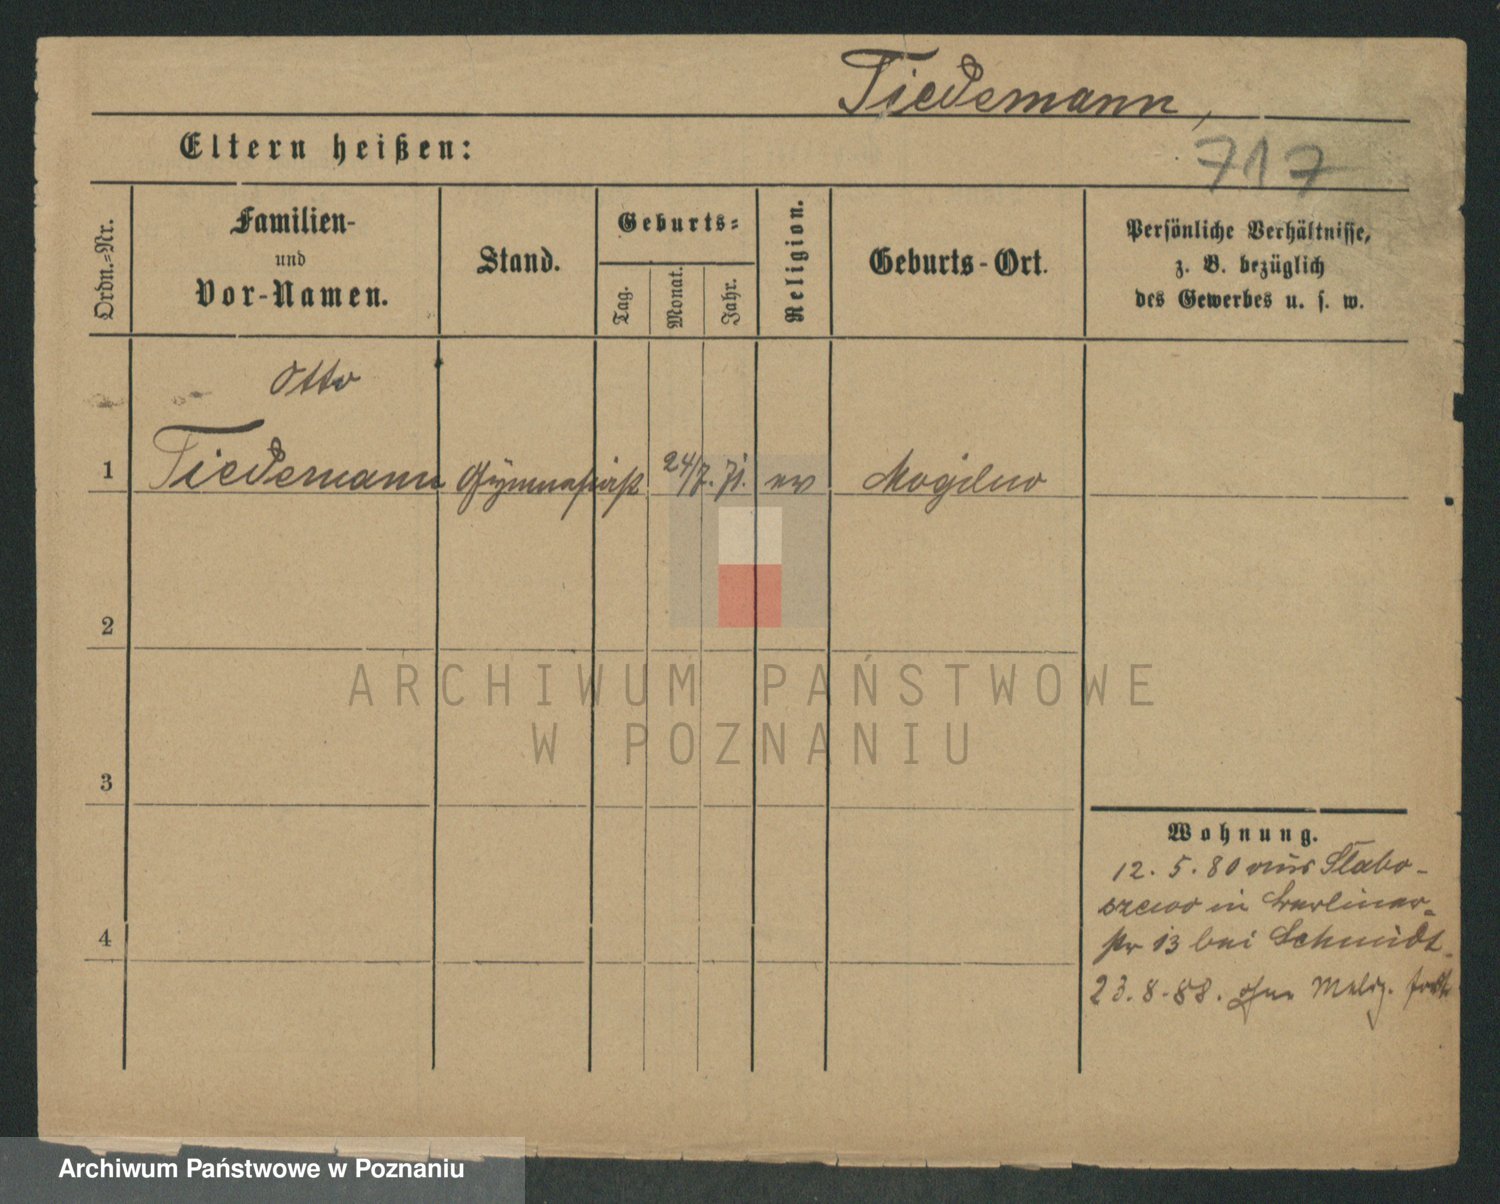 Tiedemann,
Eltern heißen:
717
Ordn.=Nr.
Familien-
und
Vor-Namen.
Stand.
Geburts=
Tag.
Monat.
Jahr.
Religion.
Geburts-Ort.
Persönliche Verhältnisse,
z. B. bezüglich
des Gewerbes u. s. w.
Otto
1 Tiedemann Gymnasiast 24/7. 71. ev Mogilno
2
ARCHIWUM PAŃSTWOWE
W POZNANIU
3
Wohnung.
12. 5. 80 aus Slabo-
szewo in Berliner-
str 13 bei Schmidt
4
23. 8. 88. ohne Meldg. fort
Archiwum Państwowe w Poznaniu